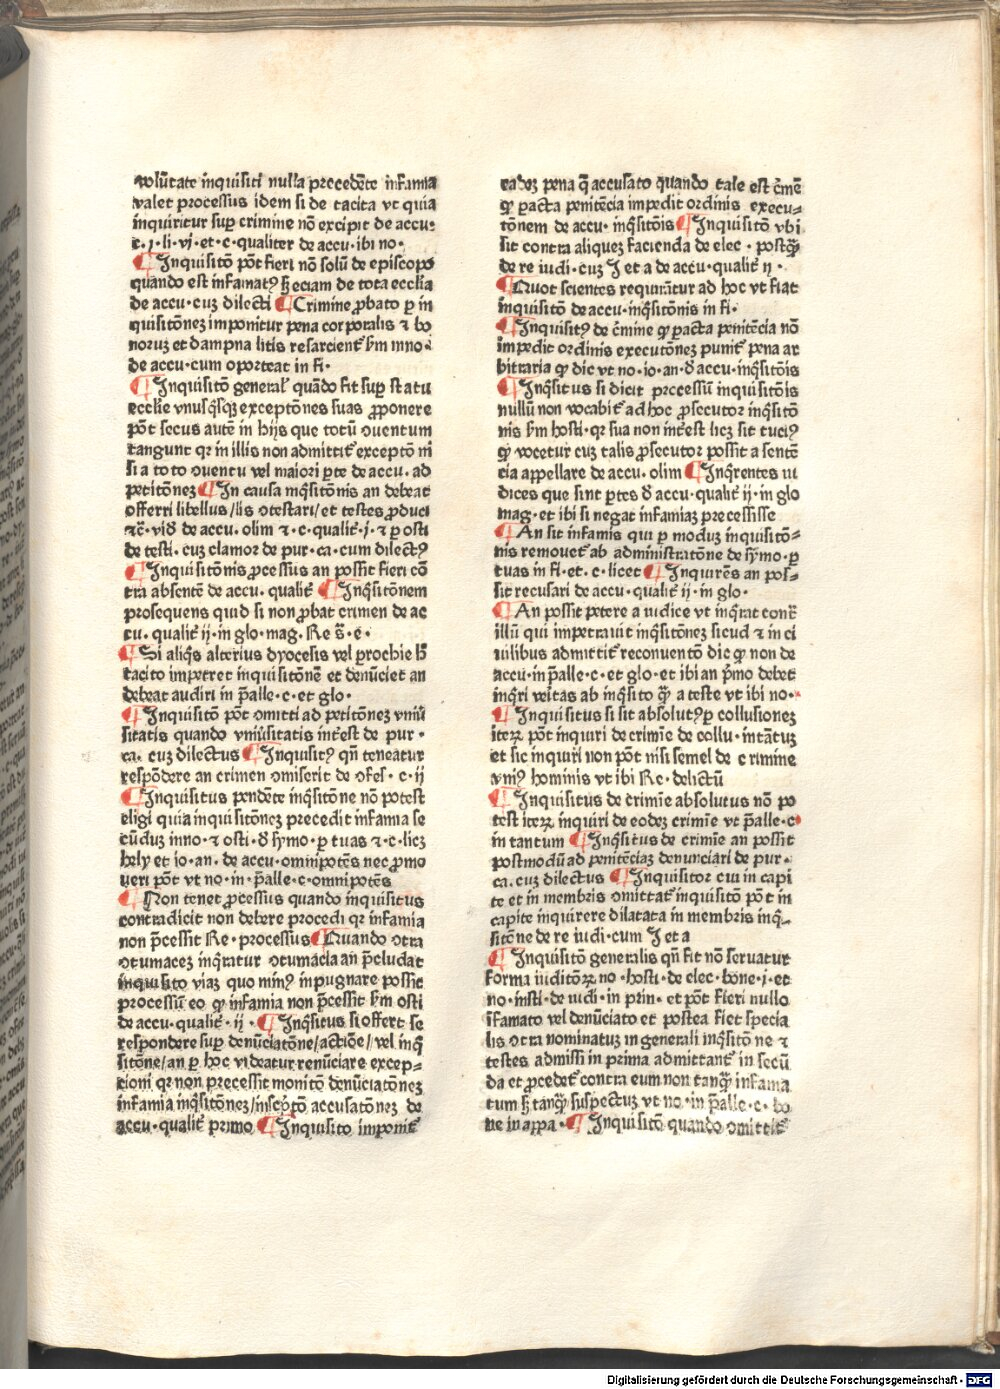 volūtate inquisiti nulla precedēte infamia
valet processus idem si de tacita vt quia
inquiritur sup crimine nō excipit de accu·
c. j· li· vj· et· c· qualiter de accu· ibi no·
¶ Inquisitō pōt fieri nō solū de episcopo
quando est infamatꝰ sꝫ eciam de tota ecclīa
de accu· cuꝫ dilecti ¶ Crimine ꝓbato ꝑ in
quisitōneꝫ imponitur pena corporalis ⁊ bo
noruꝫ et dampna litis resarcient᷑ ẜm inno·
de accu· cum oporteat in fi·
¶ Inquisitō general᷑ quādo fit sup statu
ecclīe vnusqͥsqꝫ exceptōnes suas ꝓponere
pōt secus autē in hijs que totū ꝯuentum
tangunt qr in illis non admittit᷑ exceptō nͥ
si a toto ꝯuentu vel maiori ꝑte de accu· ad
petitōneꝫ ¶ In causa inqͥsitōnis an debeat
offerri libellus/ lis ꝯtestari/ et testes ꝓduci
⁊c̄· vid̄ de accu· olim ⁊· c· qualit᷑· j· ⁊ ꝑ osti
de testi· cuꝫ clamor de pur· ca· cum dilectꝰ
¶ Inquisitōnis ꝓcessus an possit fieri cō
tra absentē de accu· qualit᷑ ¶ Inqͥsitōnem
prosequens quid si non ꝓbat crimen de ac
cu· qualit᷑ ij· in glo· mag· Re s̄· e·
¶ Si aliqͥs alterius dyocesis vel ꝑrochie h̄
tacito impetret inquisitōnē et denūciet an
debeat audiri in p̄alle· c· et glo·
¶ Inquisitō pōt omitti ad petitōneꝫ vniū
sitatis quando vniūsitatis int̄est de pur·
ca· cuꝫ dilectus ¶ Inquisitꝰ qn̄ teneatur
respōdere an crimen ꝯmiserit de ꝯfes· c· ij
¶ Inquisitus pendēte inqͥsitōne nō potest
eligi quia inquisitōneꝫ precedit infamia se
cūdus inno· ⁊ osti· d̄ symo· ꝑ tuas ⁊· c· licꝫ
hely et io· an· de accu· omnipotēs nec ꝓmo
ueri pōt vt no· in· p̄alle· c· omnipotēs
¶ Non tenet ꝓcessus quando inquisitus
contradicit non debere procedi qr infamia
non p̄cessit Re· processus ¶ Quando ꝯtra
ꝯtumaceꝫ inqͥratur ꝯtumacia an p̄cludat
inquisito viaꝫ quo minꝰ inpugnare possit
processū eo qͩ infamia non p̄cessit ẜm osti
de accu· qualit᷑· ij· ¶ Inqͥsitus si offert se
respondere sup denūciatōne/ actiōe/ vel inqͥ
sitōne/ an ꝑ hoc videatur renūciare excep-
tioni qr non precessit monitō denūciatōneꝫ
infamia inqͥsitōneꝫ/ inscꝑtō accusatōneꝫ de
accu· qualit᷑ primo ¶ Inquisito imponit᷑
eadeꝫ pena q̄ accusato quando tale est c̄mē
qͩ ꝑacta penitēcia impedit ordinis execu-
tōnem de accu· inqͥsitōis ¶ Inquisitō vbi
sit contra aliqueꝫ facienda de elec· postqͣꝫ
de re iudi· cuꝫ I et a de accu· qualit᷑ ij·
¶ Quot scientes requirātur ad hoc vt fiat
inquisitō de accu· inqͥsitōnis in fi·
¶ Inquisitꝰ de c̄mine qͩ ꝑacta penitēcia nō
impedit ordinis executōneꝫ punit᷑ pena ar
bitraria qͩ dic vt no· io· an· d̄ accu· inqͥsitōis
¶ Inqͥsitus si dicit processū inquisitōis
nullū non vocabit᷑ ad hoc ꝓsecutor inqͥsitō
nis ẜm hosti· qr sua non int̄est licꝫ sit tuciꝰ
qͩ vocetur cuꝫ talis ꝓsecutor possit a sentē
cia appellare de accu· olim ¶ Inqͥrentes iu
dices que sint ꝑtes d̄ accu· qualit᷑ ij· in glo
mag· et ibi si negat infamiaꝫ precessisse
¶ An sit infamis qui ꝑ moduꝫ inquisitō-
nis remouet᷑ ab administratōne de symo· ꝑ
tuas in fi· et· c· licet ¶ Inquirēs an pos-
sit recusari de accu· qualit᷑ ij· in glo·
¶ An possit petere a iudice vt inqͥrat contᷓ
illū qui impetrauit inqͥsitōneꝫ sicud ⁊ in ci
uilibus admittit᷑ reconuentō dic qͩ non de
accu· in p̄alle· c· et glo· et ibi an pͥmo debet
inqͥri veritas ab inqͥsito qͣꝫ a teste vt ibi no·
¶ Inquisitus si sit absolutꝰ ꝑ collusioneꝫ
iteꝝ pōt inquiri de crimīe de collu· intātuꝫ
et sic inquiri non pōt nisi semel de crimine
vniꝰ hominis vt ibi Re· delictū
¶ Inquisitus de crimīe absolutus nō po
test iteꝝ inquiri de eodeꝫ crimīe vt p̄alle· c·
in tantum ¶ Inqͥsitus de crimīe an possit
postmodū ad penitēciaꝫ denunciari de pur·
ca· cuꝫ dilectus ¶ Inquisitor cui in capi
te et in membris ꝯmittat᷑ inquisitō pōt in
capite inquirere dilatata in membris inqͥ-
sitōne de re iudi· cum I et a
¶ Inquisitō generalis qn̄ fit nō seruatur
forma iuditōꝝ no· hosti· de elec· bone· j· et
no· insti· de iudi· in prin· et pōt fieri nullo
īfamato vel denūciato et postea fiet specia
lis ꝯtra nominatuꝫ in generali inqͥsitōne ⁊
testes admissi in prima admittant᷑ in secū
da et ꝓcedet᷑ contra eum non tanqͣꝫ infama
tum sꝫ tanqͣꝫ suspectuꝫ vt no· in p̄alle· c· bo
ne in appa· ¶ Inquisitō quando ꝯmittit᷑
Digitalisierung gefördert durch die Deutsche Forschungsgemeinschaft - DFG